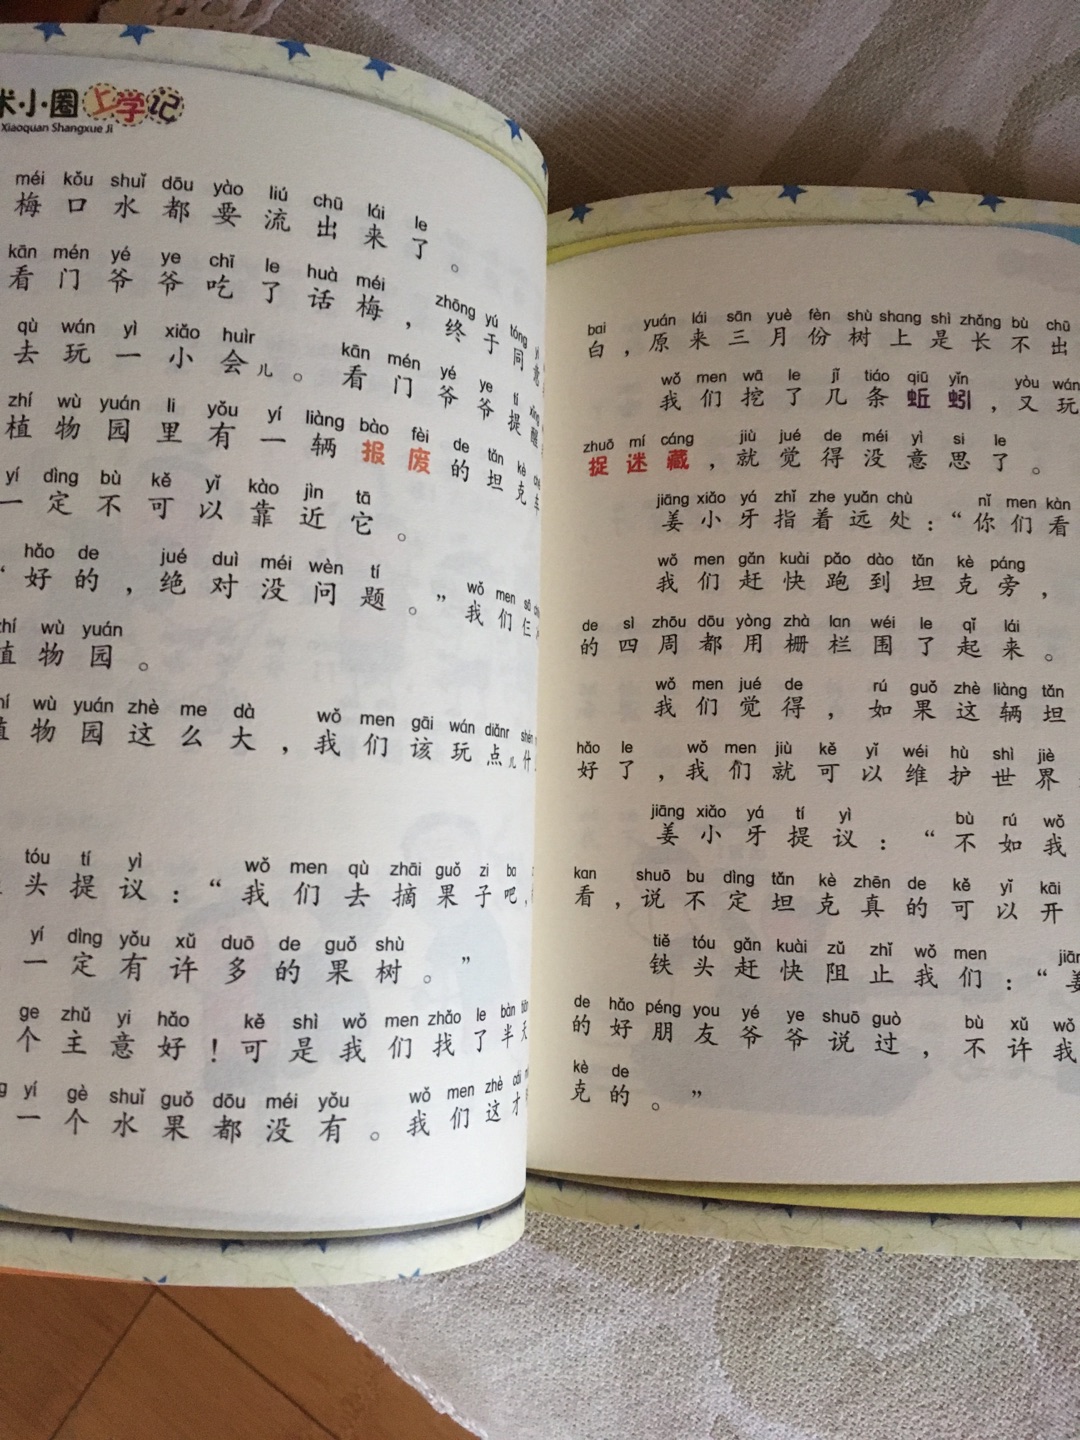 米·小·圈上学记
Xiaoquan Shangxue Ji
méi kǒu shuǐ dōu yào liú chū lái le
梅口水都要流出来了。
kān mén yé ye chī le huà méi zhōng yú tóng
看门爷爷吃了话梅，终于同意
qù wán yì xiǎo huìr kān mén yé ye tí xǐng
去玩一小会儿。看门爷爷提醒
zhí wù yuán li yǒu yí liàng bào fèi de tǎn kè
植物园里有一辆报废的坦克车
yí dìng bù kě yǐ kào jìn tā
一定不可以靠近它。
hǎo de jué duì méi wèn tí wǒ men sā
“好的，绝对没问题。”我们仨
zhí wù yuán
植物园。
wù yuán zhè me dà wǒ men gāi wán diǎnr
植物园这么大，我们该玩点儿什
tóu tí yì wǒ men qù zhāi guǒ zi ba
头提议：“我们去摘果子吧，
yí dìng yǒu xǔ duō de guǒ shù
一定有许多的果树。”
ge zhǔ yi hǎo kě shì wǒ men zhǎo le bàn tiān
个主意好！可是我们找了半天
yí gè shuǐ guǒ dōu méi yǒu wǒ men zhè cái
一个水果都没有。我们这才
bai yuán lái sān yuè fèn shù shang shì zhǎng bù chū
白，原来三月份树上是长不出
wǒ men wā le jǐ tiáo qiū yǐn yòu wán
我们挖了几条蚯蚓，又玩
zhuō mí cáng jiù jué de méi yì si le
捉迷藏，就觉得没意思了。
jiāng xiǎo yá zhǐ zhe yuǎn chù nǐ men kàn
姜小牙指着远处：“你们看
wǒ men gǎn kuài pǎo dào tǎn kè páng
我们赶快跑到坦克旁，
de sì zhōu dōu yòng zhà lan wéi le qǐ lái
的四周都用栅栏围了起来。
wǒ men jué de rú guǒ zhè liàng tǎn
我们觉得，如果这辆坦
hǎo le wǒ men jiù kě yǐ wéi hù shì jiè
好了，我们就可以维护世界
jiāng xiǎo yá tí yì bù rú wǒ
姜小牙提议：“不如我
kan shuō bu dìng tǎn kè zhēn de kě yǐ kāi
看，说不定坦克真的可以开
tiě tóu gǎn kuài zǔ zhǐ wǒ men jiāng
铁头赶快阻止我们：“姜
de hǎo péng you yé ye shuō guò bù xǔ wǒ
的好朋友爷爷说过，不许我
kè de
克的。”